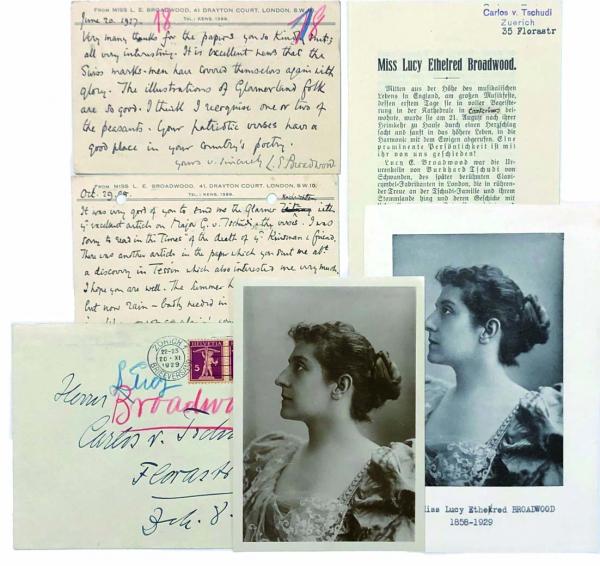 FROM MISS L. E. BROADWOOD, 41 DRAYTON COURT, LONDON, S.W.10.
TEL.: KENS. 1399.
June 20. 1927.
18
18
Very many thanks for the papers you so kindly sent;
all very interesting. It is excellent news that the
Swiss marks-men have covered themselves again with
glory. The illustrations of Glarnerland folk
are so good. I think I recognise one or two of
the peasants. Your patriotic verses have a
good place in your country's poetry.
Yours v. sincerely L. E. Broadwood
FROM MISS L. E. BROADWOOD, 41 DRAYTON COURT, LONDON, S.W.10.
TEL.: KENS. 1399.
Oct. 29.
It was very good of you to send me the Glarner Nachrichten with
yr excellent article on Major G. v. Tschudi, & the verses. I was
sorry to read in the 'Times' of the death of yr kinsman & friend.
There was another article in the paper which you sent me abt
a discovery in Tessin which also interested me very much.
I hope you are well. The summer
but now rain – badly needed in
Carlos v. Tschudi
Zuerich
35 Florastr
Miss Lucy Ethelred Broadwood.
Mitten aus der Höhe des musikalischen
Lebens in England, am großen Musikfeste,
dessen erstem Tage sie in voller Begeiste-
rung in der Kathedrale in Canterbury
wurde sie am 21. August nach ihrer
Heimkehr zu Hause durch einen Herzschlag
sacht und sanft in das höhere Leben, in die
Harmonie mit dem Ewigen abgerufen. Eine
prominente Persönlichkeit ist mit
ihr von uns geschieden!
Lucy E. Broadwood war die Ur-
enkelin von Burkhard Tschudi von
Schwanden, des später berühmten Clavi-
cymbel-Fabrikanten in London, die in rühren-
der Treue an der Tschudi-Familie und ihrem
Stammlande hing und deren Geschicke mit
ZÜRICH
22-23
20·XI
1929
BRIEFVERSAND
HELVETIA
5
Herrn
Lucy
Broadwo
Carlos v. Tschu
Florastr
Zch. 8.
Miss Lucy Ethelred BROADWOOD
1858-1929